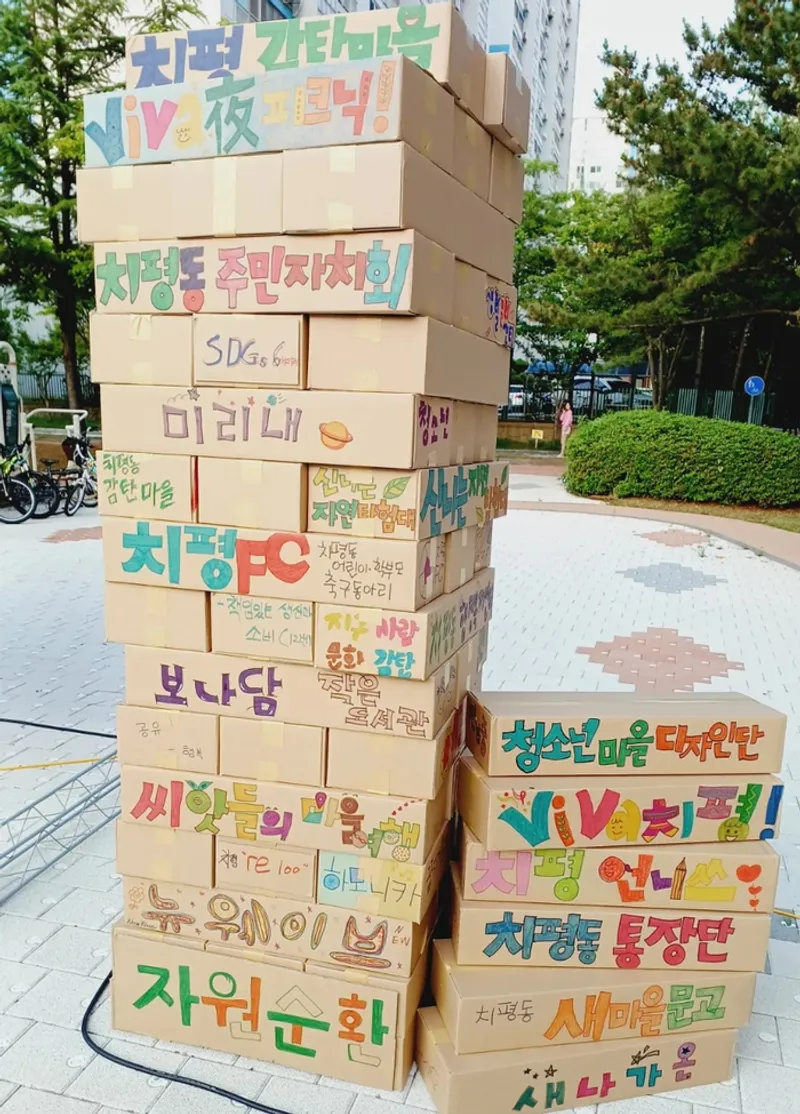 치평 감탄마을
Viva 夜 피크닉!
치평동 주민자치회
SDGs
미리내
청소년
치평동
감탄마을
신나는
자연탐험대
신나는
치평FC
치평동
어린이·학부모
축구동아리
-책임있는 생산과
소비(12번)
지구 사람
문화 감탄
보나담
작은
도서관
공유
씨앗들의 마을여행
치평 "re 100"
하모니카
뉴웨이브
NEW
자원순환
청소년 마을 디자인단
Viva 치평!
치평 언니쓰
치평동 통장단
치평동 새마을문고
새나가온